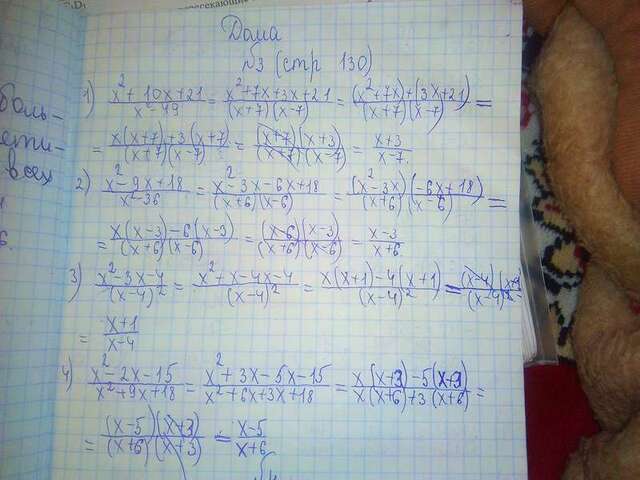 C₁D₁
ресекающие
Дома
№3 (стр 130)
боль-
ети-
всех
6.
1) (x²+10x+21)/(x²-49) = (x²+7x+3x+21)/((x+7)(x-7)) = ((x²+7x)+(3x+21))/((x+7)(x-7)) =
= (x(x+7)+3(x+7))/((x+7)(x-7)) = ((x+7)(x+3))/((x+7)(x-7)) = (x+3)/(x-7).
2) (x²-9x+18)/(x²-36) = (x²-3x-6x+18)/((x+6)(x-6)) = ((x²-3x)(-6x+18))/((x+6)(x-6)) =
= (x(x-3)-6(x-3))/((x+6)(x-6)) = ((x-6)(x-3))/((x+6)(x-6)) = (x-3)/(x+6).
3) (x²-3x-4)/(x-4)² = (x²+x-4x-4)/(x-4)² = (x(x+1)-4(x+1))/(x-4)² = ((x-4)(x+1))/(x-4)² =
= (x+1)/(x-4)
4) (x²-2x-15)/(x²+9x+18) = (x²+3x-5x-15)/(x²+6x+3x+18) = (x(x+3)-5(x+3))/(x(x+6)+3(x+6)) =
= ((x-5)(x+3))/((x+6)(x+3)) = (x-5)/(x+6)